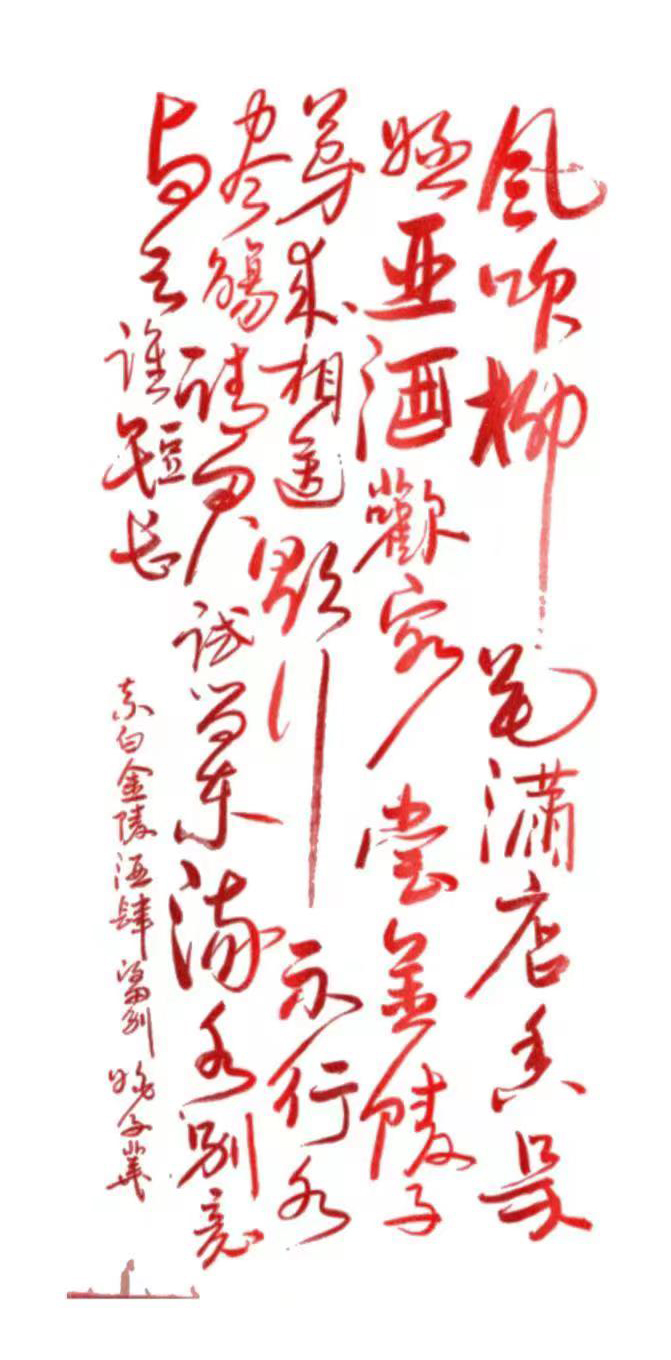 風吹柳花滿店香吳
姬亚酒歡客嘗金陵子
弟來相送欲行不行各
尽觴請君試问東流水别意
与之誰短长
李白金陵酒肆留别